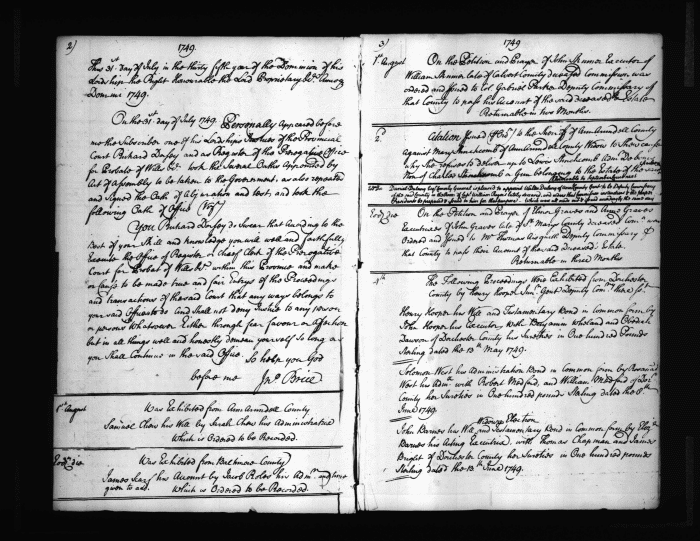 2)
1749
This 31st day of July in the thirty fifth year of the Dominion of his
Lordship the Right Honourable the Lord Proprietary &ca Annoq
Domini 1749.
On the 31st day of July 1749 Personally Appeared before
me the Subscriber one of his Lordships Justices of the Provincial
Court Richard Dorsey and as Register of the Prerogative Office
for Probate of Wills &ca took the Several Oaths Appointed by
Act of Assembly to be taken to the Government, as also repeated
and Signed the Oath of Abjuration and test; and took the
following Oath of Office
You Richard Dorsey do Swear that According to the
Best of your Skill and knowledge you will well and faithfully
Execute the Office of Register or Chief Clerk of the Prerogative
Court for Probat of Wills &ca within this Province and make
or cause to be made true and fair Entrys of the Proceedings
and transactions of the said Court that any ways belongs to
your said Office to do And Shall not deny Justice to any person
or persons Whatsoever Either through fear favour or Affection
but in all things well and honestly demean yourself So long as
you Shall Continue in the said Office So help you God
before me Jno Brice
1st August
Was Exhibited from Ann Arundell County
Samuel Chew his Will by Sarah Chew his Administratrix
Which is Ordered to be Recorded.
Eod. die
Was Exhibited from Baltimore County
James his Account by Jacob his Admr. and time
given to add. Which is Ordered to be Recorded
3)
1749
1st August
On the Petition and Prayer of John Skinner Executor of
William Skinner late of Calvert County deceased Commission was
ordered and issued to Col Gabriel Parker Deputy Commissary of
that County to pass his Account of the said deceaseds Estate
Returnable in two Months.
2d
Citation Issued to the Sheriff of Ann Arundell County
against Mary of Ann Arundell County Widow to Show cause
why She refuses to deliver up to
of Charles a Gun belonging to the
Eod. die
On the Petition and Prayer of Elinor Graves and Graves
Executrixs of John Graves late of St Marys County deceased Comn. was
Ordered and issued to Mr Thomas Deputy Commissary of
that County to pass their Account of the said deceaseds Estate.
Returnable in three Months
4th
The Following Proceedings Were Exhibited from Dorchester
County by Henry Hooper Junr. Gent. Deputy Comry there (to wit)
Henry Hooper his Will and Testamentary Bond in Common form by
John Hooper his Executor, With Benjamin Whitland and Obediah
Dawson of Dorchester County his Sureties in One hundred Pounds
Sterling dated the 13th May 1749.
Solomon West his Administration Bond in Common form by
West his Admx. with Robert Medford, and William Medford of Dorst.
County her Sureties in One hundred pounds Sterling dated the 8th
June 1749.
Widows Election.
John Barnes his Will and Testamentary Bond in Common form by Elizth
Barnes his Acting Executrix, with Thomas Chapman and James
Bright of Dorchester County her Sureties in One hundred pounds
Sterling dated the 13th June 1749.